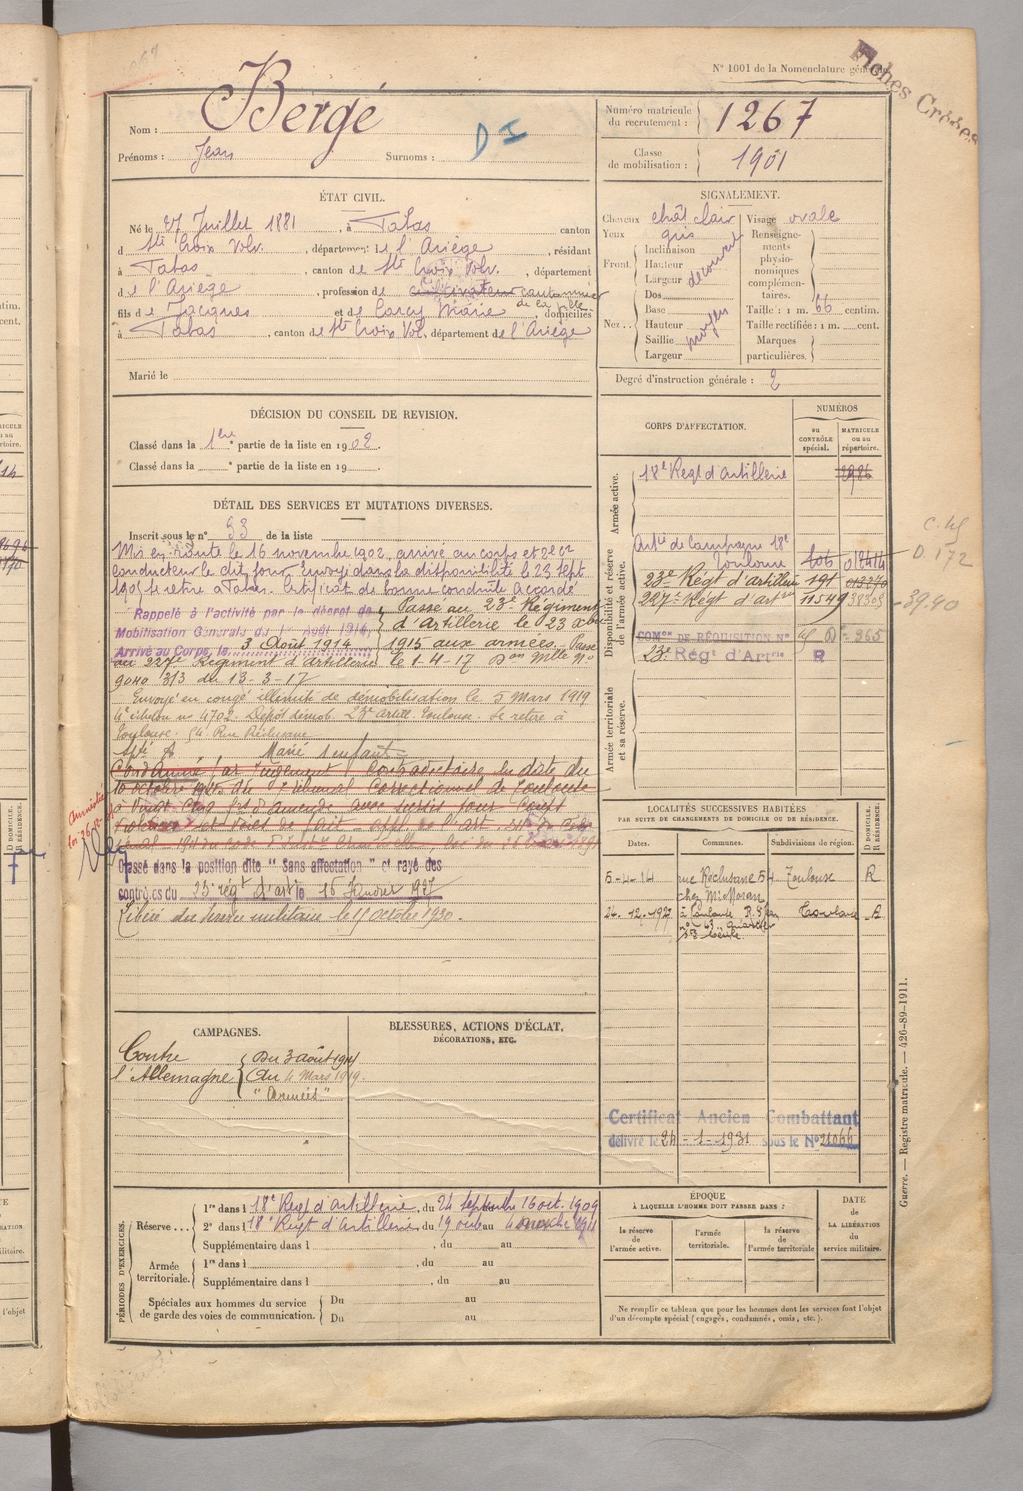 N° 1001 de la Nomenclature générale.
Fiches Croisées
Nom : Bergé
Prénoms : Jean Surnoms : D I
Numéro matricule du recrutement : 1267
Classe de mobilisation : 1901
ÉTAT CIVIL.
Né le 27 Juillet 1881, à Tatas canton
d Ste Croix Volv. , département de l'Ariège , résidant
à Tatas , canton de Ste Croix Volv. , département
de l'Ariège , profession de cultivateur cantonnier de la ville
fils de Jacques et de Carcy Marie , domiciliés
à Tatas , canton de Ste Croix Vol. département de l'Ariège
Marié le
SIGNALEMENT.
Cheveux chât clair
Yeux gris
Front. Inclinaison
Hauteur découvert
Largeur
Nez Dos
Base
Hauteur moyen
Saillie
Largeur
Visage ovale
Renseignements physionomiques complémentaires.
Taille : 1 m. 66 centim.
Taille rectifiée : 1 m. cent.
Marques particulières.
Degré d'instruction générale : 2
DÉCISION DU CONSEIL DE REVISION.
Classé dans la 1ère partie de la liste en 1902.
Classé dans la e partie de la liste en 19
DÉTAIL DES SERVICES ET MUTATIONS DIVERSES.
Inscrit sous le n° 53 de la liste
Mis en route le 16 novembre 1902, arrivé au corps et 2e cr
conducteur le dit jour Envoyé dans la disponibilité le 23 sept
1905 se retire à Tatas. Certificat de bonne conduite Accordé
Rappelé à l'activité par le décret de
Mobilisation Générale du 1er Août 1914,
Arrivé au Corps, le 3 Août 1914
Passé au 23e Régiment
d'Artillerie le 23 xbre
1915 aux armées. Passé
au 227e Régiment d'artillerie le 1-4-17 Don Mlle No
9040 3/3 du 13-3-17
Envoyé en congé illimité de démobilisation le 5 Mars 1919
4e échelon no 4702. Dépôt démob. 23e Artill. Toulouse. Se retire à
Toulouse. 54 Rue Réclusane
Apté A Marié 1 enfant
Condamné par Jugement Contradictoire en date du
10 octobre 1925 du Tribunal Correctionnel de Toulouse
à Vingt Cinq frs d'Amende avec sursis pour Coups
et voies de fait
Amnistié
Classé dans la position dite "Sans affectation" et rayé des
contrôles du 23e régt d'artie le 15 Janvier 1927
Libéré du service militaire le 15 octobre 1930.
CORPS D'AFFECTATION.
NUMÉROS
au CONTRÔLE spécial.
MATRICULE ou au répertoire.
Armée active.
18e Regt d'Artillerie 2986
Disponibilité et réserve de l'armée active.
Artie de Campagne 18e
Toulouse 606 012414
23e Régt d'artillerie 191 013270
227e Régt d'art 11549 38305
COMon DE RÉQUISITION N°
23e Régt d'Artrie R
Armée territoriale et sa réserve.
D. 172
39.40
LOCALITÉS SUCCESSIVES HABITÉES
PAR SUITE DE CHANGEMENTS DE DOMICILE OU DE RÉSIDENCE.
Dates. Communes. Subdivisions de région. D DOMICILE. R RÉSIDENCE.
5-4-14 rue Réclusane 54 Toulouse R
chez Mr Moran
26.12.1927 à Toulouse Toulouse
CAMPAGNES.
Contre l'Allemagne
Du 3 août 1914
Au 4 Mars 1919
"Armées"
BLESSURES, ACTIONS D'ÉCLAT,
DÉCORATIONS, ETC.
Certificat Ancien Combattant
délivré le 24-1-1931 sous le N° 21066
PÉRIODES D'EXERCICES.
Réserve ... 1re dans l 18e Regt d'artillerie, du 24 septembre 16 oct. 1909
2e dans l 18e Regt d'Artillerie du 19 octe au 4 novembre 1911
Supplémentaire dans l , du au
Armée territoriale. 1re dans l , du au
Supplémentaire dans l , du au
Spéciales aux hommes du service de garde des voies de communication. Du au
Du au
ÉPOQUE
À LAQUELLE L'HOMME DOIT PASSER DANS :
la réserve de l'armée active.
l'armée territoriale.
la réserve de l'armée territoriale
DATE de LA LIBÉRATION du service militaire.
Ne remplir ce tableau que pour les hommes dont les services font l'objet
d'un décompte spécial (engagés, condamnés, omis, etc.).
Guerre. — Registre matricule. — 426-89-1911.